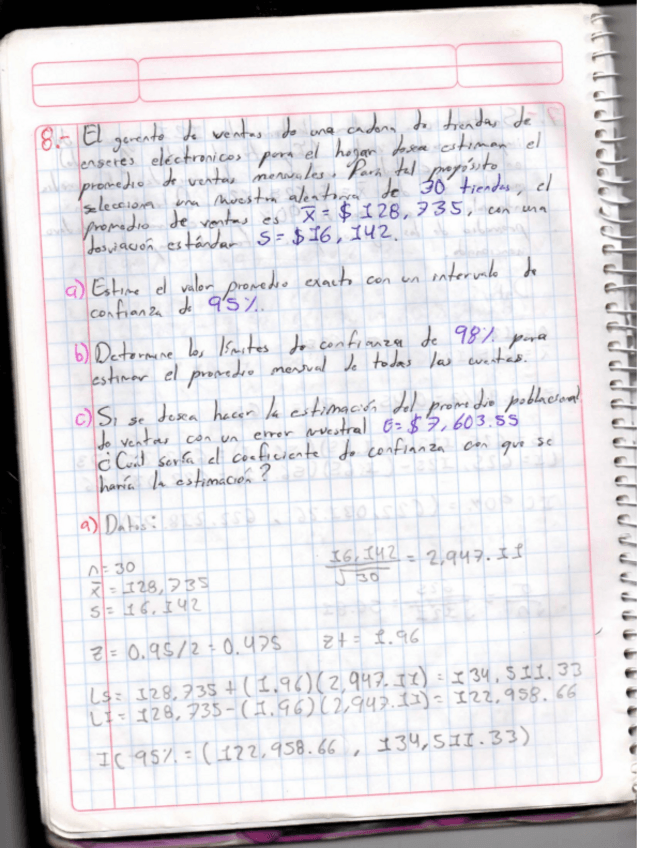 8.- El gerente de ventas de una cadena de tiendas de
enseres eléctronicos para el hogar desea estimar el
promedio de ventas mensuales. Para tal propósito
selecciona una muestra aleatoria de 30 tiendas, el
promedio de ventas es x̄ = $ 128,735, con una
desviación estándar S= $16,142.
a) Estime el valor promedio exacto con un intervalo de
confianza de 95%.
b) Determine los límites de confianza de 98% para
estimar el promedio mensual de todas las cuentas.
c) Si se desea hacer la estimación del promedio poblacional
de ventas con un error muestral E= $7,603.55
¿Cuál sería el coeficiente de confianza con que se
haría la estimación?
a) Datos:
n= 30
x̄ = 128,735
s= 16,142
16,142 / √30 = 2,947.11
z= 0.95/2 = 0.475 zt= 1.96
Ls= 128,735+(1.96)(2,947.11) = 134,511.33
LI= 128,735-(1.96)(2,947.11)= 122,958.66
IC 95% = (122,958.66 , 134,511.33)